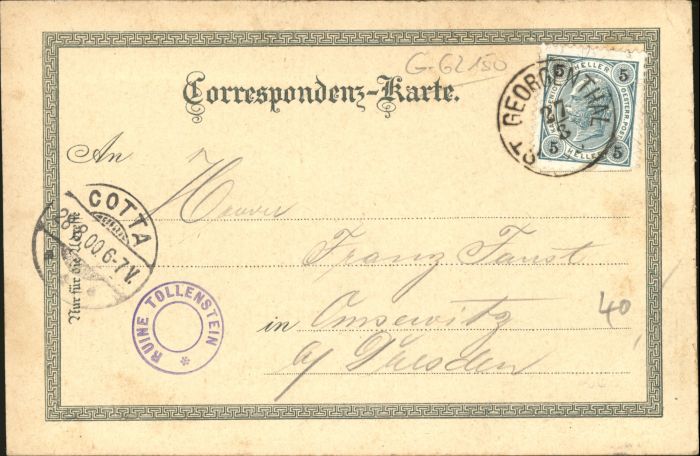 G-62150
Correspondenz-Karte.
5 HELLER 5
KAIS. KÖN. OESTERR. POST
5 HELLER 5
ST GEORGENTHAL
27
8
An
COTTA
28.8.00.6-7V.
a
Nur für die Adresse
RUINE TOLLENSTEIN *
Herrn
Franz Faust
in Omsewitz
a/ Dresden
40